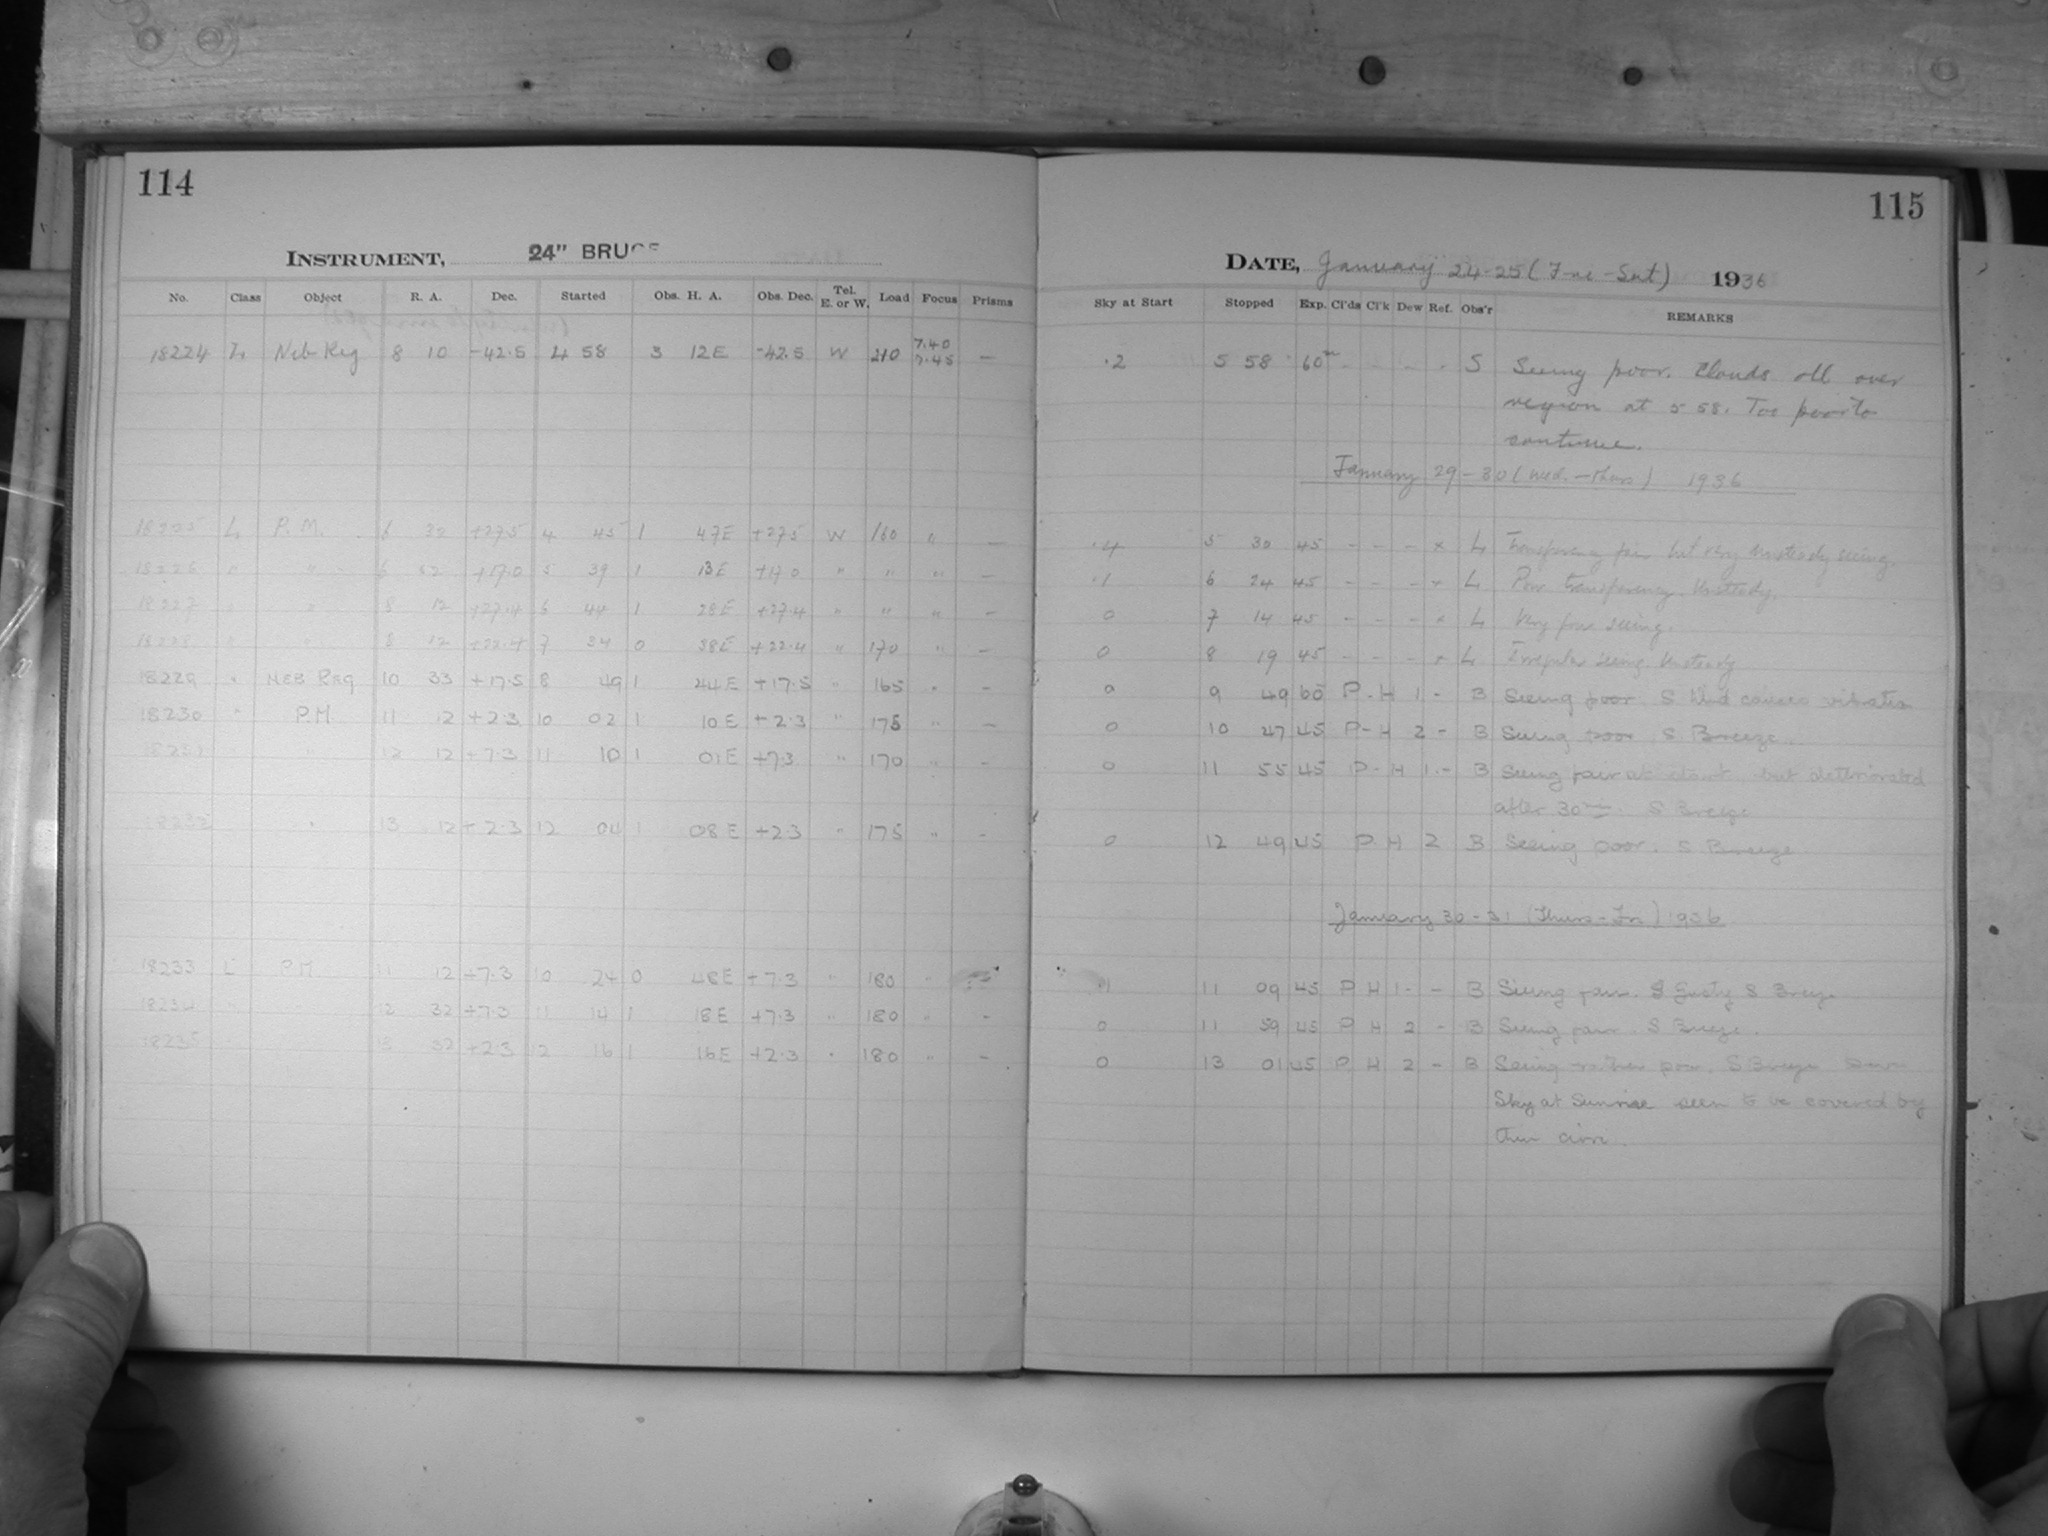 114
INSTRUMENT, 24" BRUCE
No. Class Object R. A. Dec. Started Obs. H. A. Obs. Dec. Tel. E. or W. Load Focus Prisms
18224 L Neb Reg 8 10 -42.5 4 58 3 12E -42.5 W 210 7.40 7.45 —
18225 L P.M. 6 32 +27.5 4 45 1 47E +27.5 W 160 " —
18226 " " 6 32 +17.0 5 39 1 13E +17.0 " " " —
18227 " " 8 12 +27.4 6 44 1 28E +27.4 " " " —
18228 " " 8 12 +22.4 7 34 0 38E +22.4 " 170 " —
18229 " NEB REG 10 33 +17.5 8 49 1 44E +17.5 " 165 " —
18230 " P.M 11 12 +2.3 10 02 1 10E +2.3 " 175 " —
18231 " " 12 12 +7.3 11 10 1 01E +7.3 " 170 " —
18232 " 13 12 +2.3 12 04 1 08E +2.3 " 175 " —
18233 L P.M. 11 12 +7.3 10 24 0 48E +7.3 " 180 " —
18234 " " 12 32 +7.3 11 14 1 18E +7.3 " 180 " —
18235 " 13 32 +2.3 12 16 1 16E +2.3 " 180 " —
115
DATE, January 24-25 (Fri-Sat) 1936
Sky at Start Stopped Exp. Cl'ds Cl'k Dew Ref. Obs'r REMARKS
.2 5 58 60m - - - - S Seeing poor. Clouds all over
region at 5 58. Too poor to
continue.
January 29-30 (Wed.-Thurs) 1936
.4 5 30 45 - - - x L Transparency fair but very unsteady seeing.
.1 6 24 45 - - - x L Poor transparency. Unsteady.
0 7 14 45 - - - x L Very poor seeing.
0 8 19 45 - - - x L Irregular seeing. Unsteady
0 9 49 60 P - H 1 - B Seeing poor. S Wind causes vibration
0 10 47 45 P - H 2 - B Seeing poor. S. Breeze.
0 11 55 45 P - H 1 - - B Seeing fair at start but deteriorated
after 30m. S Breeze
0 12 49 45 P H 2 B Seeing poor. S Breeze
January 30-31 (Thurs-Fri) 1936
.1 11 09 45 P H 1 - - B Seeing fair. Gusty S Breeze
0 11 59 45 P H 2 - B Seeing fair. S Breeze.
0 13 01 45 P H 2 - B Seeing rather poor. S Breeze
Sky at Sunrise seen to be covered by
thin cirri.